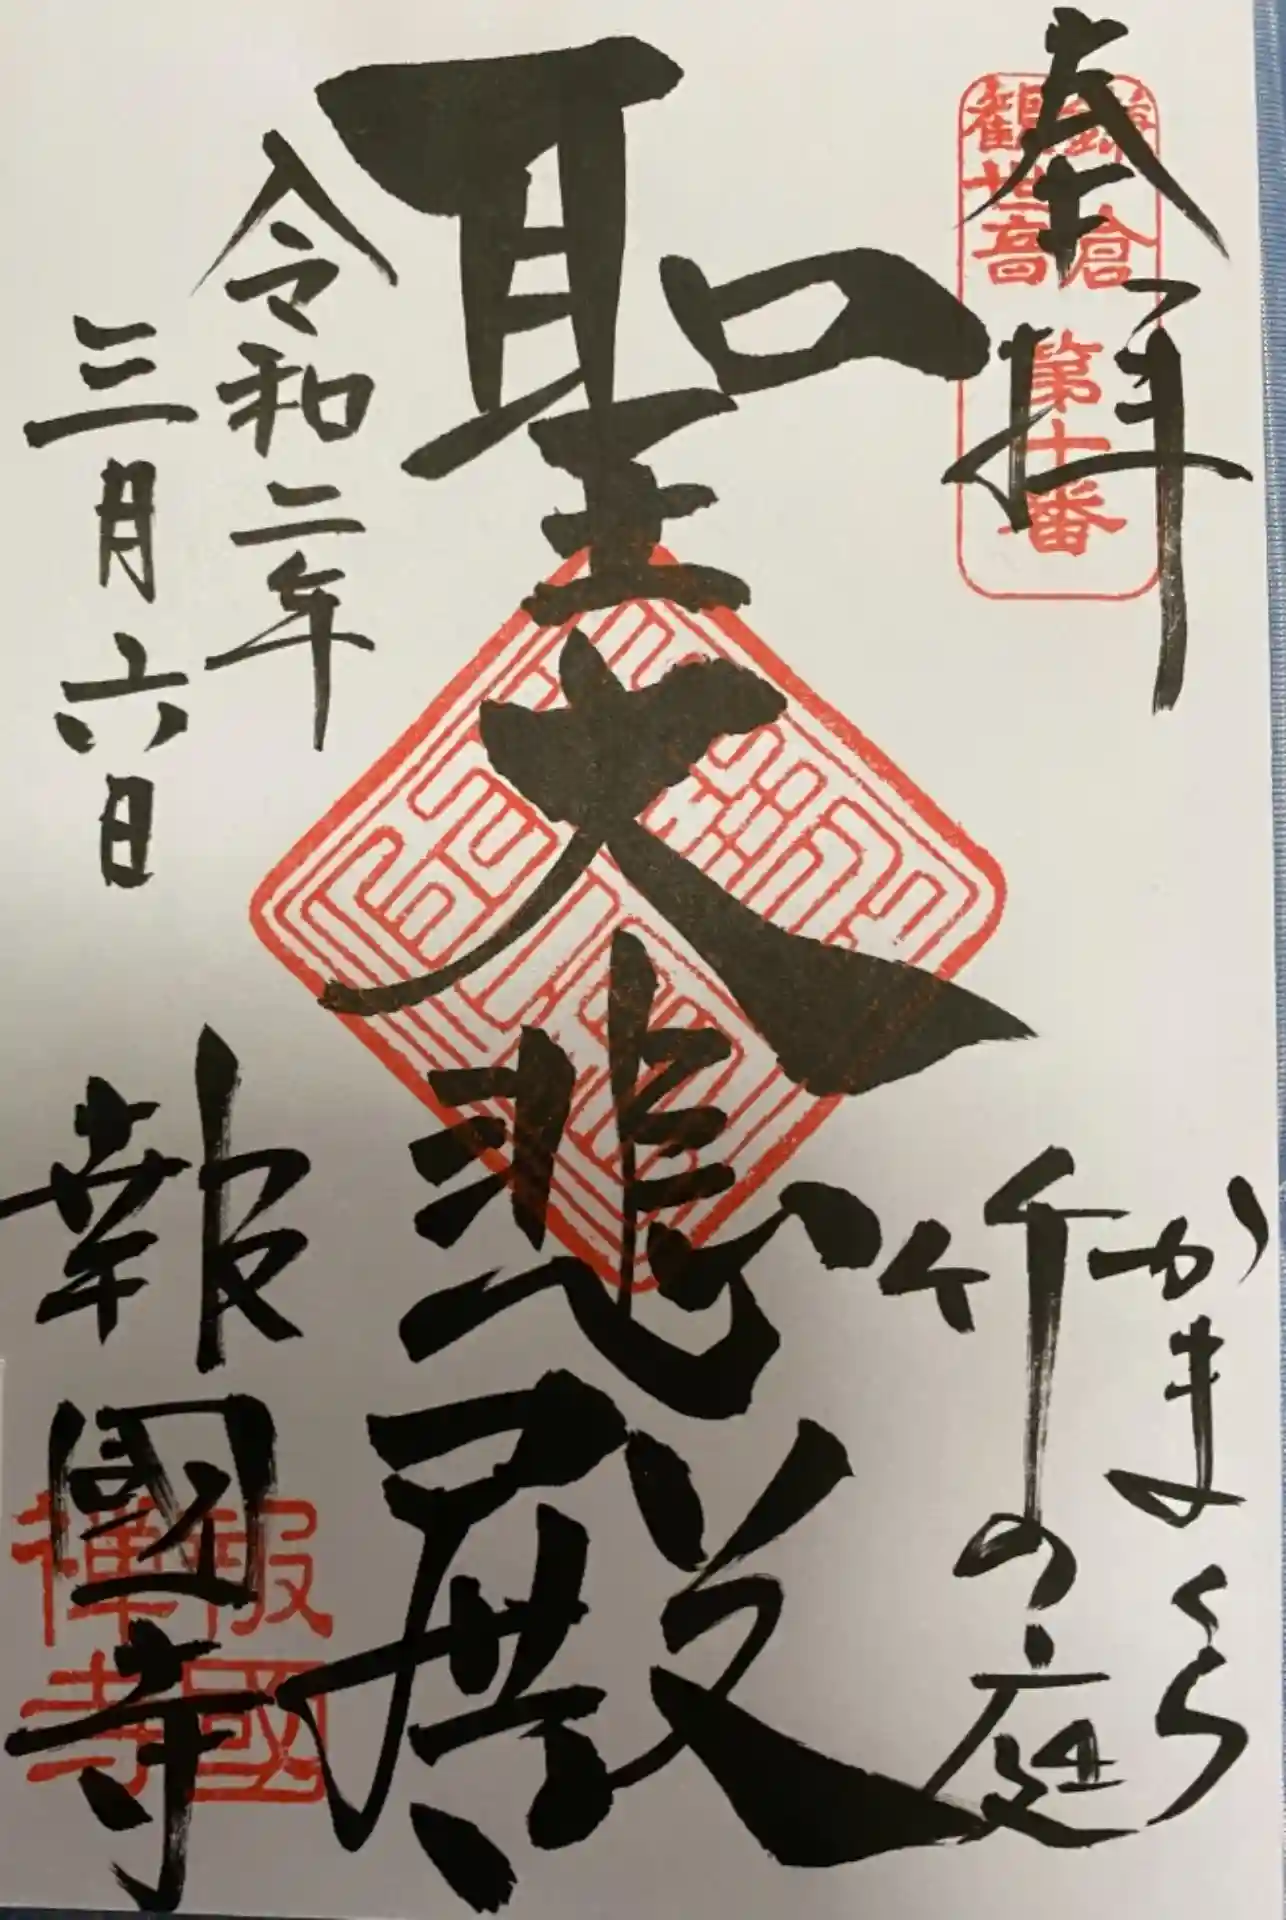 奉拝
鎌倉
観世音
第十番
かまくら
竹の庭
聖大悲殿
令和二年
三月六日
報國寺
報國
禅寺